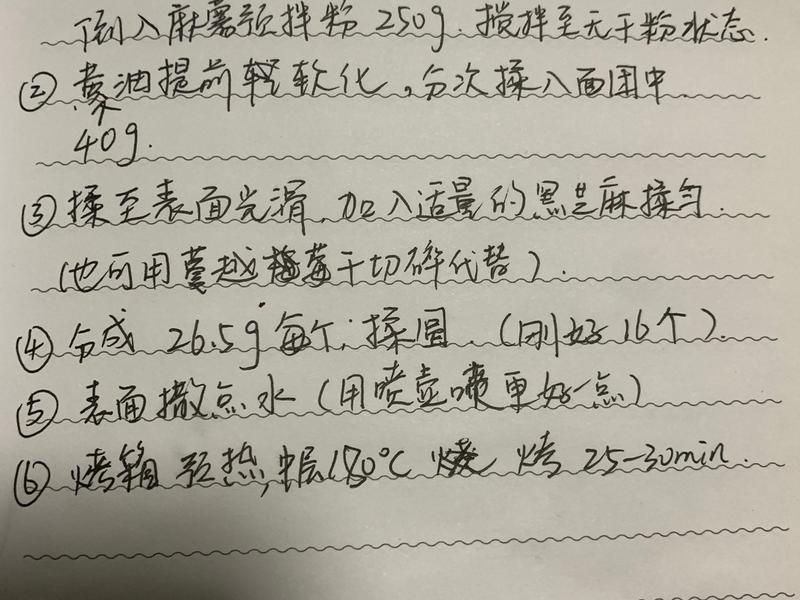 倒入麻薯预拌粉 250g. 搅拌至无干粉状态.
② 黄油提前软化,分次揉入面团中
40g.
③ 揉至表面光滑,加入适量的黑芝麻揉匀.
(也可用蔓越莓干切碎代替).
④ 分成 26.5g 每个,揉圆.(刚好16个).
⑤ 表面撒点水(用喷壶喷更好一点)
⑥ 烤箱预热,中层180℃ 烤 25-30min.